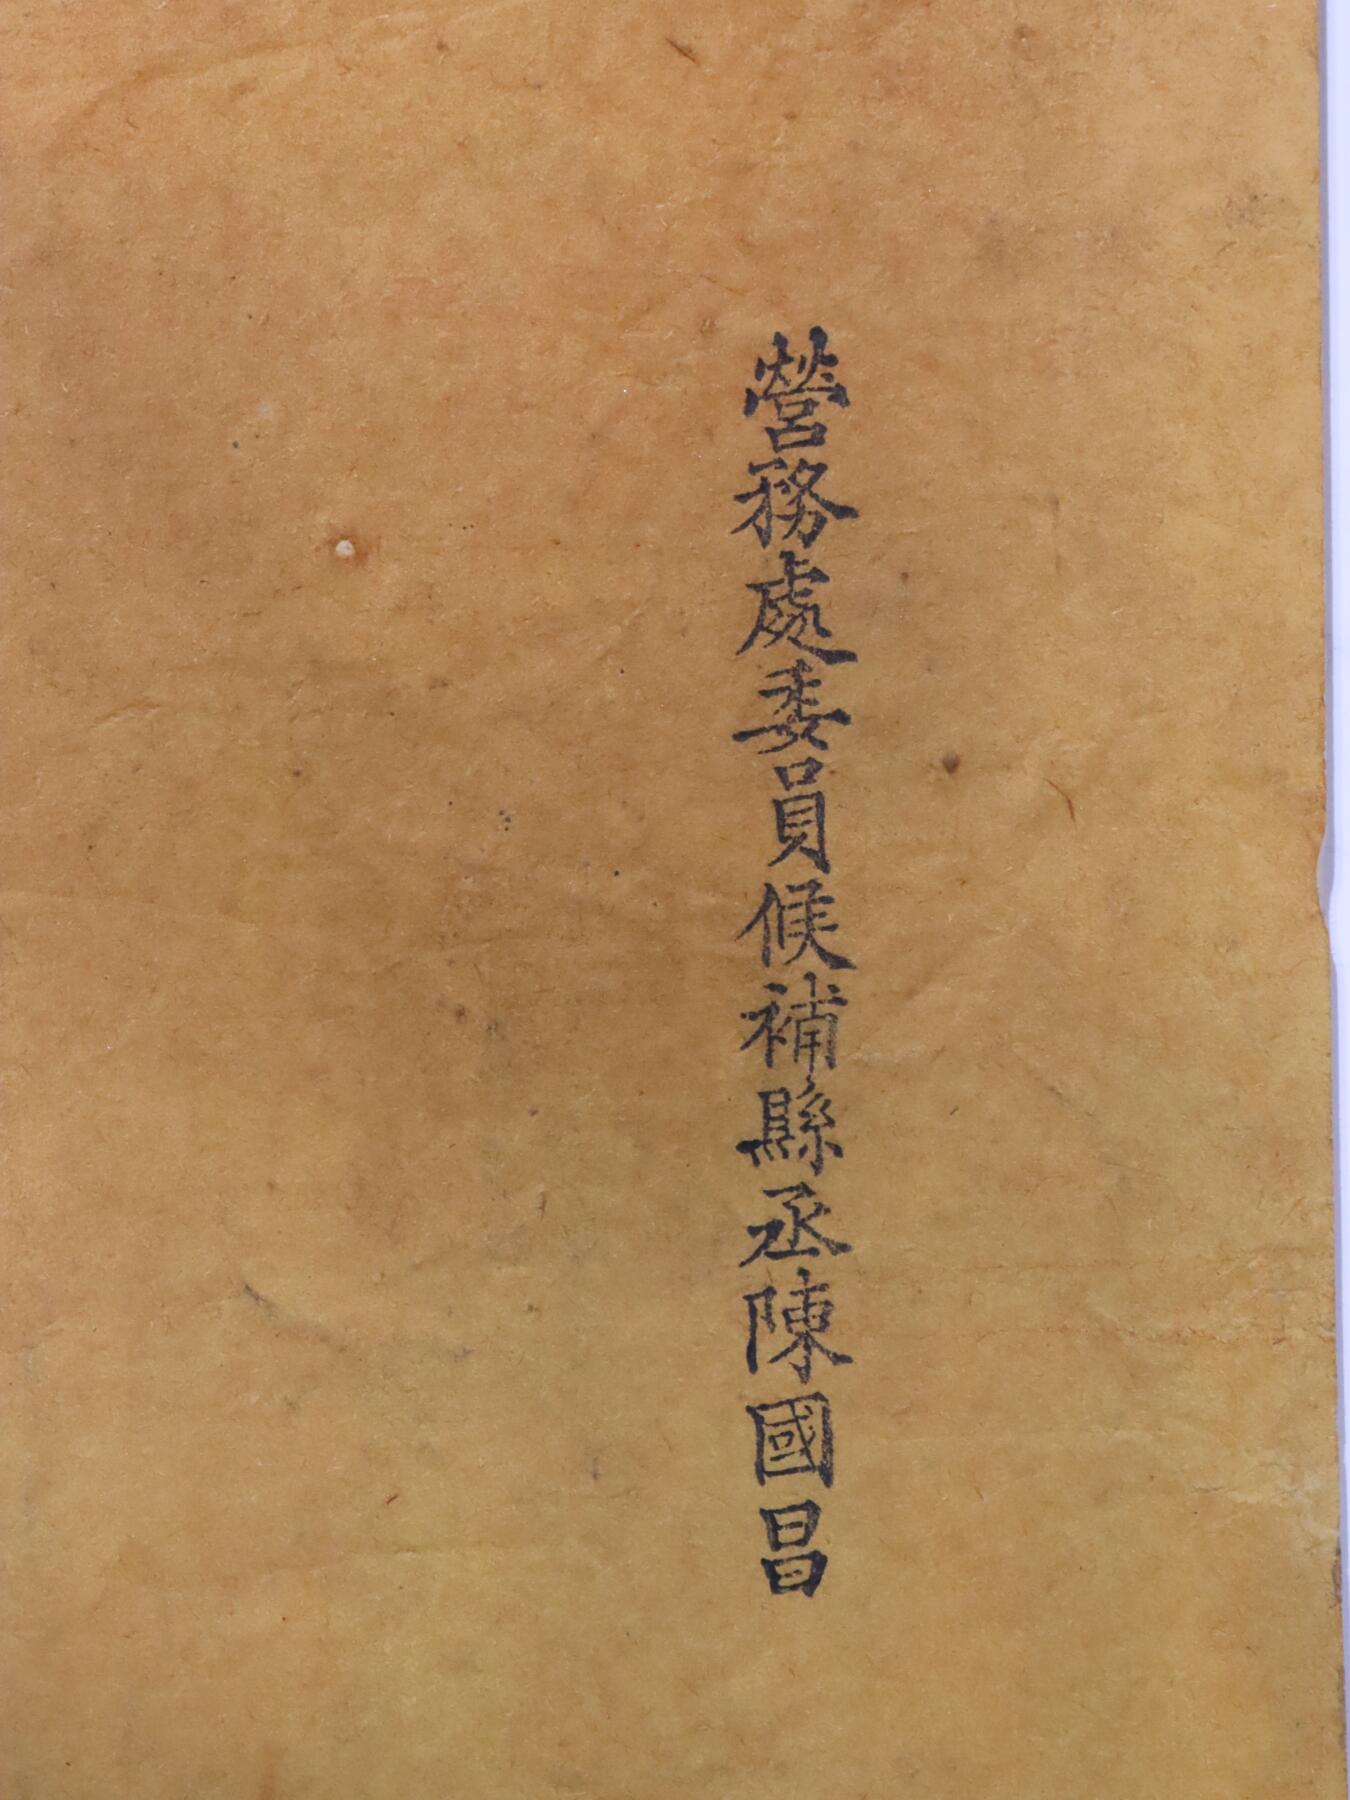 營務處委員候補縣丞陳國昌